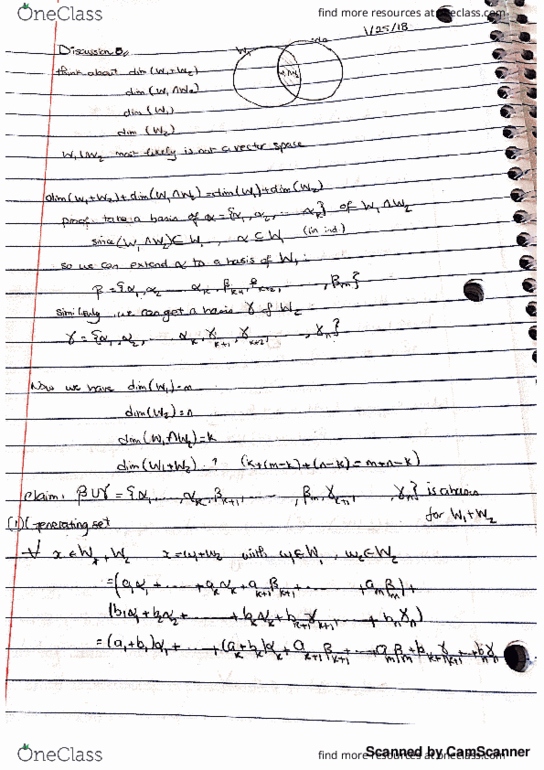 OneClass
find more resources at oneclass.com
1/25/18
Discussion
W₁ W₂
W₁∩W₂
think about dim (W₁+W₂)
dim (W₁∩W₂)
dim (W₁)
dim (W₂)
W₁∪W₂ most likely is not a vector space
dim(W₁+W₂)+dim(W₁∩W₂)=dim(W₁)+dim(W₂)
proof: take a basis of α={α₁, α₂, ... αₖ} of W₁∩W₂
since (W₁∩W₂)⊂W₁, α⊂W₁ (lin ind)
so we can extend α to a basis of W₁:
β={α₁, α₂ ... αₖ, βₖ₊₁, βₖ₊₂, ..., βₘ}
similarly, we can get a basis γ of W₂
γ={α₁, α₂, ... αₖ, γₖ₊₁, γₖ₊₂, ..., γₙ}
Now we have dim(W₁)=m
dim(W₂)=n
dim(W₁∩W₂)=k
dim(W₁+W₂)? (k+(m-k)+(n-k)=m+n-k)
claim: β∪γ={α₁, ..., αₖ, βₖ₊₁, ..., βₘ, γₖ₊₁, γₙ} is a basis
for W₁+W₂
(1) generating set
∀ x∈W₁+W₂ x=w₁+w₂ with w₁∈W₁, w₂∈W₂
=(a₁α₁+...+aₖαₖ+aₖ₊₁βₖ₊₁+...+aₘβₘ)+
(b₁α₁+b₂α₂+...+bₖαₖ+bₖ₊₁γₖ₊₁...+bₙγₙ)
=(a₁+b₁)α₁+...+(aₖ+bₖ)αₖ+aₖ₊₁βₖ₊₁+...+aₘβₘ+bₖ₊₁γₖ₊₁+...+bₙγₙ
OneClass
find more resources at oneclass.com
Scanned by CamScanner